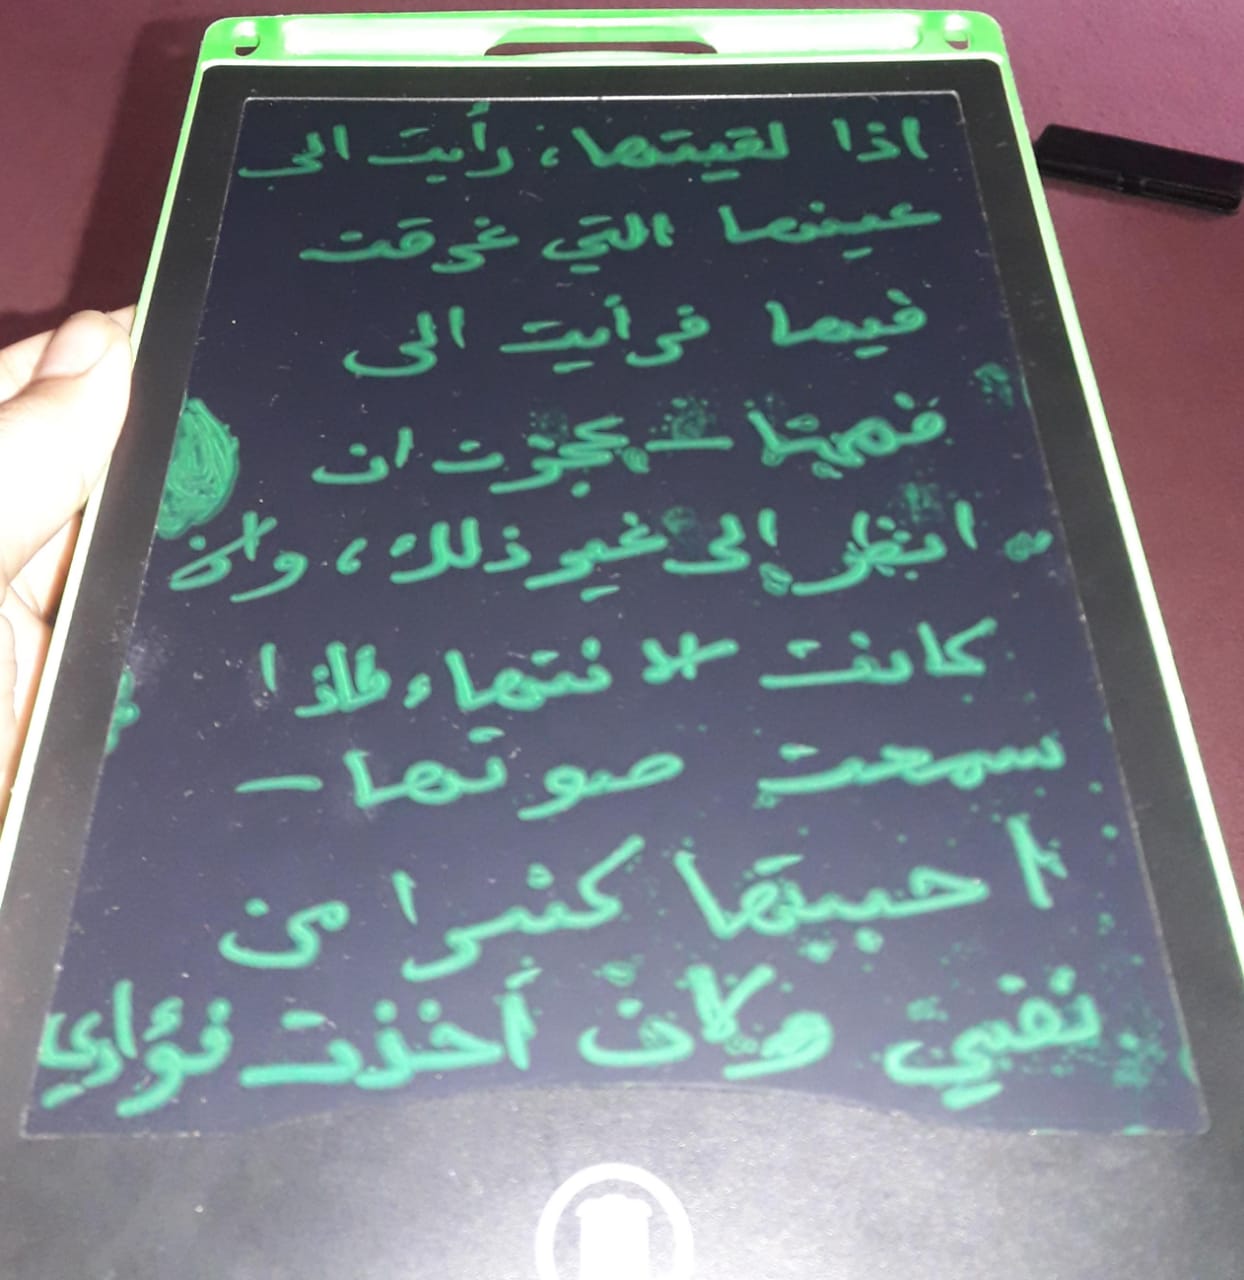 اذا لقيتها، رأيت الى
عينها التي غرقت
فيها فرأيت الى
فمها – عجزت ان
انظر إلى غير ذلك، ولان
كانت لا ننتهاء فاذا
سمعت صوتها –
احببتها كثيرا من
نفسي وكان أخذت فؤادي